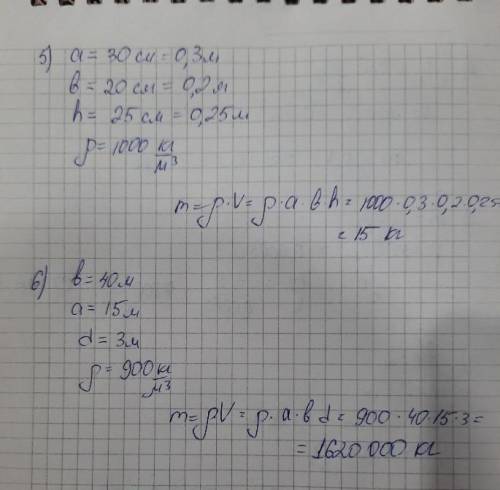 5) a = 30 см = 0,3 м
в = 20 см = 0,2 м
h = 25 см = 0,25 м
ρ = 1000 кг/м³
m = ρ·V = ρ·a·в·h = 1000·0,3·0,2·0,25
= 15 кг
6) в = 40 м
a = 15 м
d = 3 м
ρ = 900 кг/м³
m = ρV = ρ·a·в d = 900·40·15·3 =
= 1620 000 кг